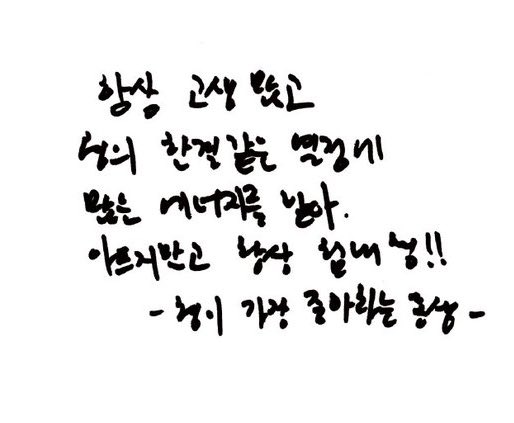 항상 고생 많고
형의 한결같은 열정에
많은 에너지를 받아.
아프지만고 항상 힘내 형!!
- 형이 가장 좋아하는 동생 -